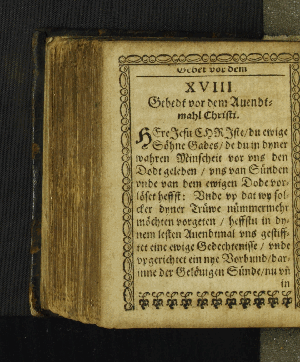 Gebet vor dem
XVIII.
Gebedt vor dem Auendt-
mahl Christi.
HEre Jesu CHRJste / du ewige
Söhne Gades / de du in dyner
wahren Minscheit vor vns den
Dodt geleden / vns van Sünden
vnde van dem ewigen Dode vor-
löset heffst: Vnde vp dat wy sol-
cker dyner Trüwe nümmermehr
möchten vorgeten / heffstu in dy-
nem lesten Auendtmal vns gestiff-
tet eine ewige Gedechtenisse / vnde
vpgerichtet ein nye Vorbund / dar-
inne der Gelöuigen Sünde / nu vñ
in